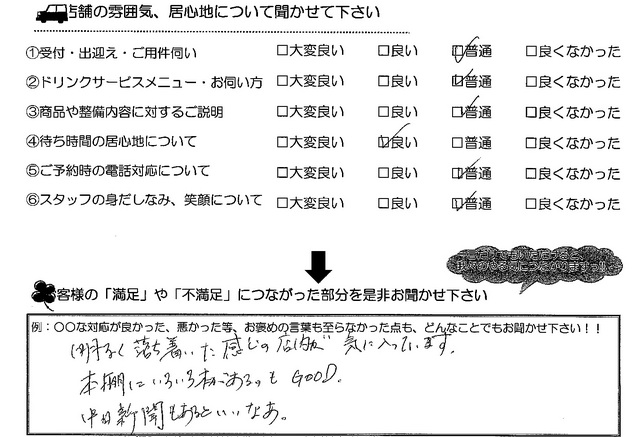 店舗の雰囲気、居心地について聞かせて下さい
①受付・出迎え・ご用件伺い □大変良い □良い ☑普通 □良くなかった
②ドリンクサービスメニュー・お伺い方 □大変良い □良い ☑普通 □良くなかった
③商品や整備内容に対するご説明 □大変良い □良い ☑普通 □良くなかった
④待ち時間の居心地について □大変良い ☑良い □普通 □良くなかった
⑤ご予約時の電話対応について □大変良い □良い ☑普通 □良くなかった
⑥スタッフの身だしなみ、笑顔について □大変良い □良い ☑普通 □良くなかった
客様の「満足」や「不満足」につながった部分を是非お聞かせ下さい
例：〇〇な対応が良かった、悪かった等、お褒めの言葉も至らなかった点も、どんなことでもお聞かせ下さい！！
明るく落ち着いた感じの店内が気に入っています。
本棚にいろいろ本があるのもGOOD.
中日新聞もあるといいなあ。